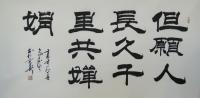 但願人
長久千
里共嬋
娟